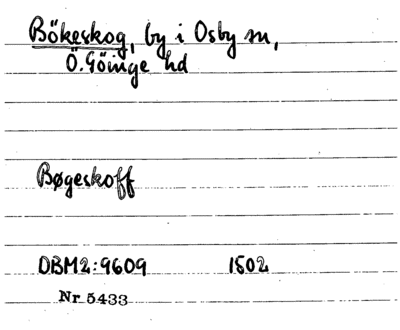 Bökeskog, by i Osby sn,
Ö. Göinge hd
Bøgeskoff
DBM2:9609 1502
Nr 5433